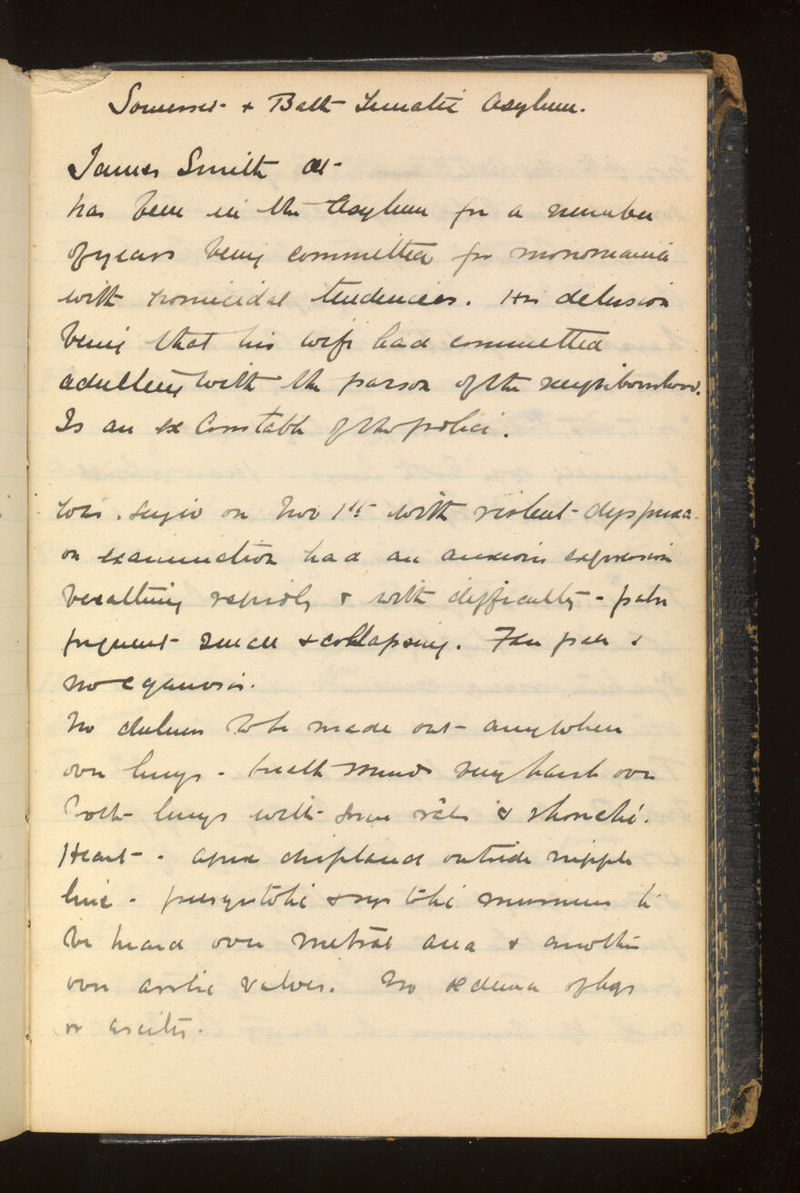 Somerset & Bath Lunatic Asylum.
James Smith aet
has been in the Asylum for a number
of years being committed for monomania
with homicidal tendencies. His delusion
being that his wife had committed
adultery with the parson of the neighbourhood.
Is an ex Constable of the police.
was on Nov 1st with violent dyspnoea
on examination had an anxious expression
breathing rapidly & with difficulty - pulse
frequent small & collapsing. Face pale &
no cyanosis.
No dulness to be made out anywhere
over lungs - breath sounds very harsh over
both lungs with some râles & rhonchi.
Heart - apex displaced outside nipple
line - presystolic & systolic murmurs to
be heard over mitral area & another
over aortic valves. No oedema of legs
or ascites.